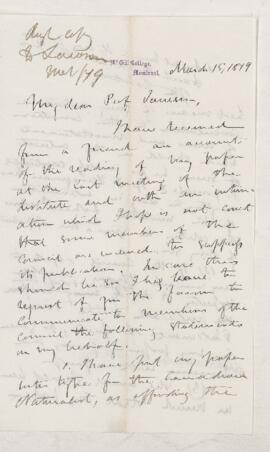 McGill College,
Montreal,
March 15, 1879
My dear Prof
I have received
from a friend an account
of the reading of my paper
at the last meeting of the
Institute and with an intim-
ation which I hope is not correct
that some members of the
Council are inclined to suppress
its publication. In case this
should be so I beg leave to
request of you the favour to
communicate to members of the
the following statements
on my behalf.
1. I have put my paper
into type for the Canadian
Naturalist, as affording the